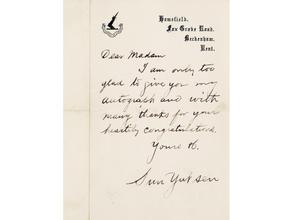 Homefield,
Fox Grove Road,
Beckenham,
Kent.
Dear Madam
I am only too
glad to give you my
autograph and with
many thanks for your
heartily congratulations.
Yours &c.
Sun Yat sen